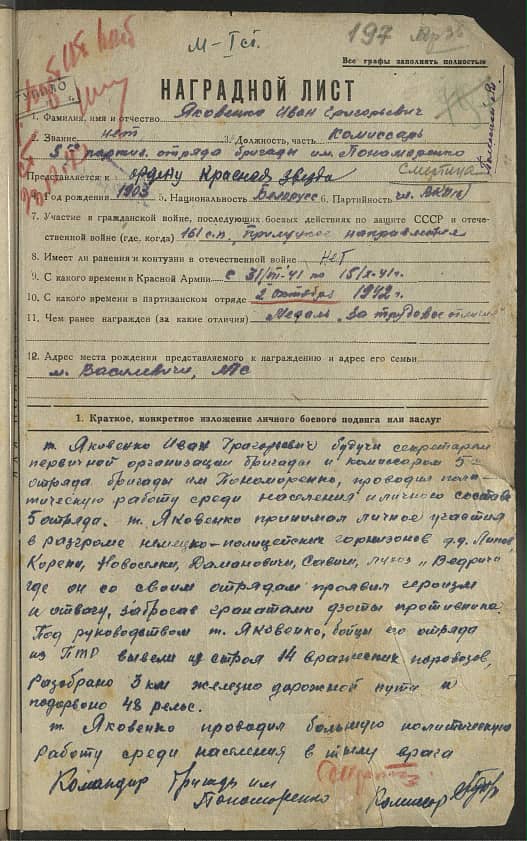 М-I сл.
197
Все графы заполнять полностью
НАГРАДНОЙ ЛИСТ
1. Фамилия, имя и отчество Яковенко Иван Григорьевич
2. Звание нет 3. Должность, часть Комиссарь
5го партиз. отряда бригады им. Пономаренко
Представляется к ордену Красная звезда
4. Год рождения 1903 5. Национальность Белорусс 6. Партийность чл. ВКП(б)
7. Участие в гражданской войне, последующих боевых действиях по защите СССР и отече-
ственной войне (где, когда) 161 с.п., Прилуцкое направления
8. Имеет ли ранения и контузии в отечественной войне нет
9. С какого времени в Красной Армии с 31/VII-41 по 15/X-41г.
10. С какого времени в партизанском отряде 2 октября 1942 г.
11. Чем ранее награжден (за какие отличия) Медаль "За трудовое отличие"
12. Адрес места рождения представляемого к награждению и адрес его семьи
м. Василевичи, МТС
1. Краткое, конкретное изложение личного боевого подвига или заслуг
т. Яковенко Иван Григорьевич будучи секретарем
первичной организации бригады и комиссаром 5го
отряда бригады им Пономоренко, проводил поли-
тическую работу среди населения и личного состава
5 отряда. т. Яковенко принимал личное участия
в разгроме немецко-полицейских горнизонов д.д. Липов,
Корени, Новоселки, Дамановичи, Савичи, "Ведричь"
где он со своим отрядам проявил героизм
и отвагу, забросав гранатами дзоты противника.
Под руководством т. Яковенко, бойцы его отряда
из ПТР вывели из строя 14 вражеских паровозов,
Разобрано 3 км железно дорожной пути и
подорвоно 48 рельс.
т. Яковенко проводил большую политическую
Работу среди населения в тылу врага
Командир бригады им
Пономоренко Комиссар